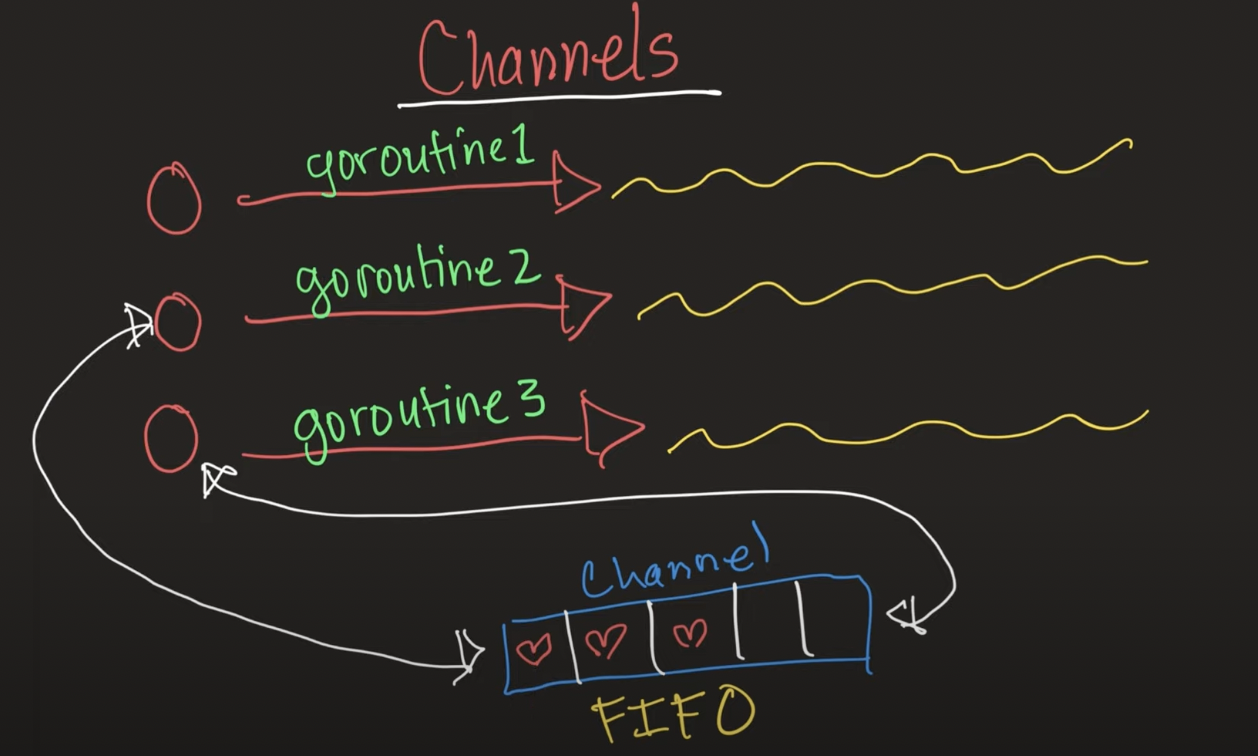 Channels
goroutine1
goroutine2
goroutine3
Channel
FIFO